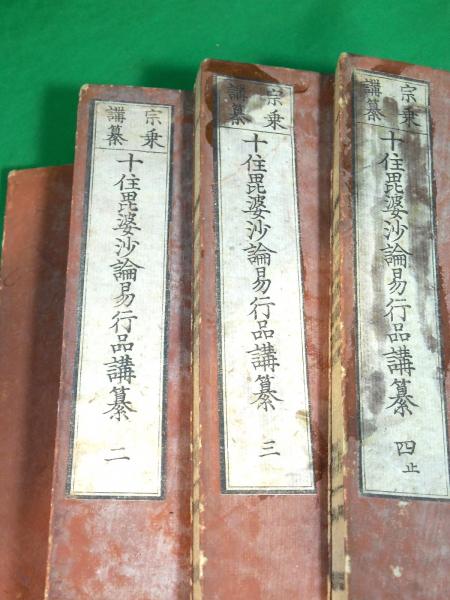 宗乗
講纂
十住毘婆沙論易行品講纂 二
宗乗
講纂
十住毘婆沙論易行品講纂 三
宗乗
講纂
十住毘婆沙論易行品講纂 四止